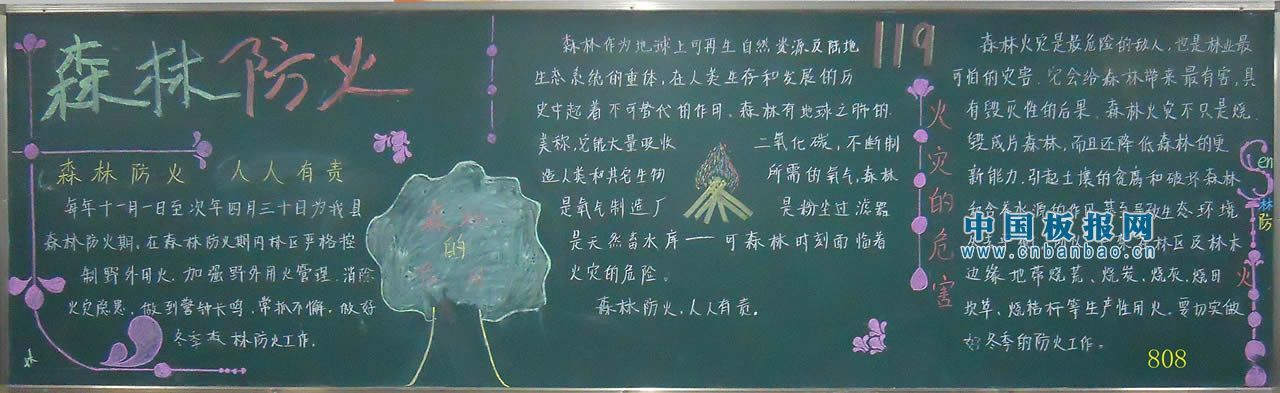 森林防火
森林防火 人人有责
每年十一月一日至次年四月三十日为我县
森林防火期。在森林防火期内林区严格控
制野外用火,加强野外用火管理,消除
火灾隐患,做到警钟长鸣,常抓不懈,做好
冬季 林防火工作。
森林
的
森林作为地球上可再生自然资源及陆地
生态系统的重体,在人类生存和发展的历
史中起着不可替代的作用。森林有地球之肺的
美称,它能大量吸收 二氧化碳,不断制
造人类和其它生物 所需的氧气,森林
是氧气制造厂 是粉尘过滤器
是天然畜水库——可森林时刻面临着
火灾的危险。
森林防火,人人有责。
119
火灾的危害
森林火灾是最危险的敌人,也是林业最
可怕的灾害,它会给森林带来最有害,具
有毁灭性的后果。森林火灾不只是烧
毁成片森林,而且还降低森林的更
新能力,引起土壤的贫瘠和破坏森林
生态环境
林区及林木
边缘地带烧荒、烧炭、烧灰、烧田
坎草、烧秸秆等生产性用火。要切实做
好冬季的防火工作。
Sen
林
防
火
808
中国板报网
www.cnbanbao.cn